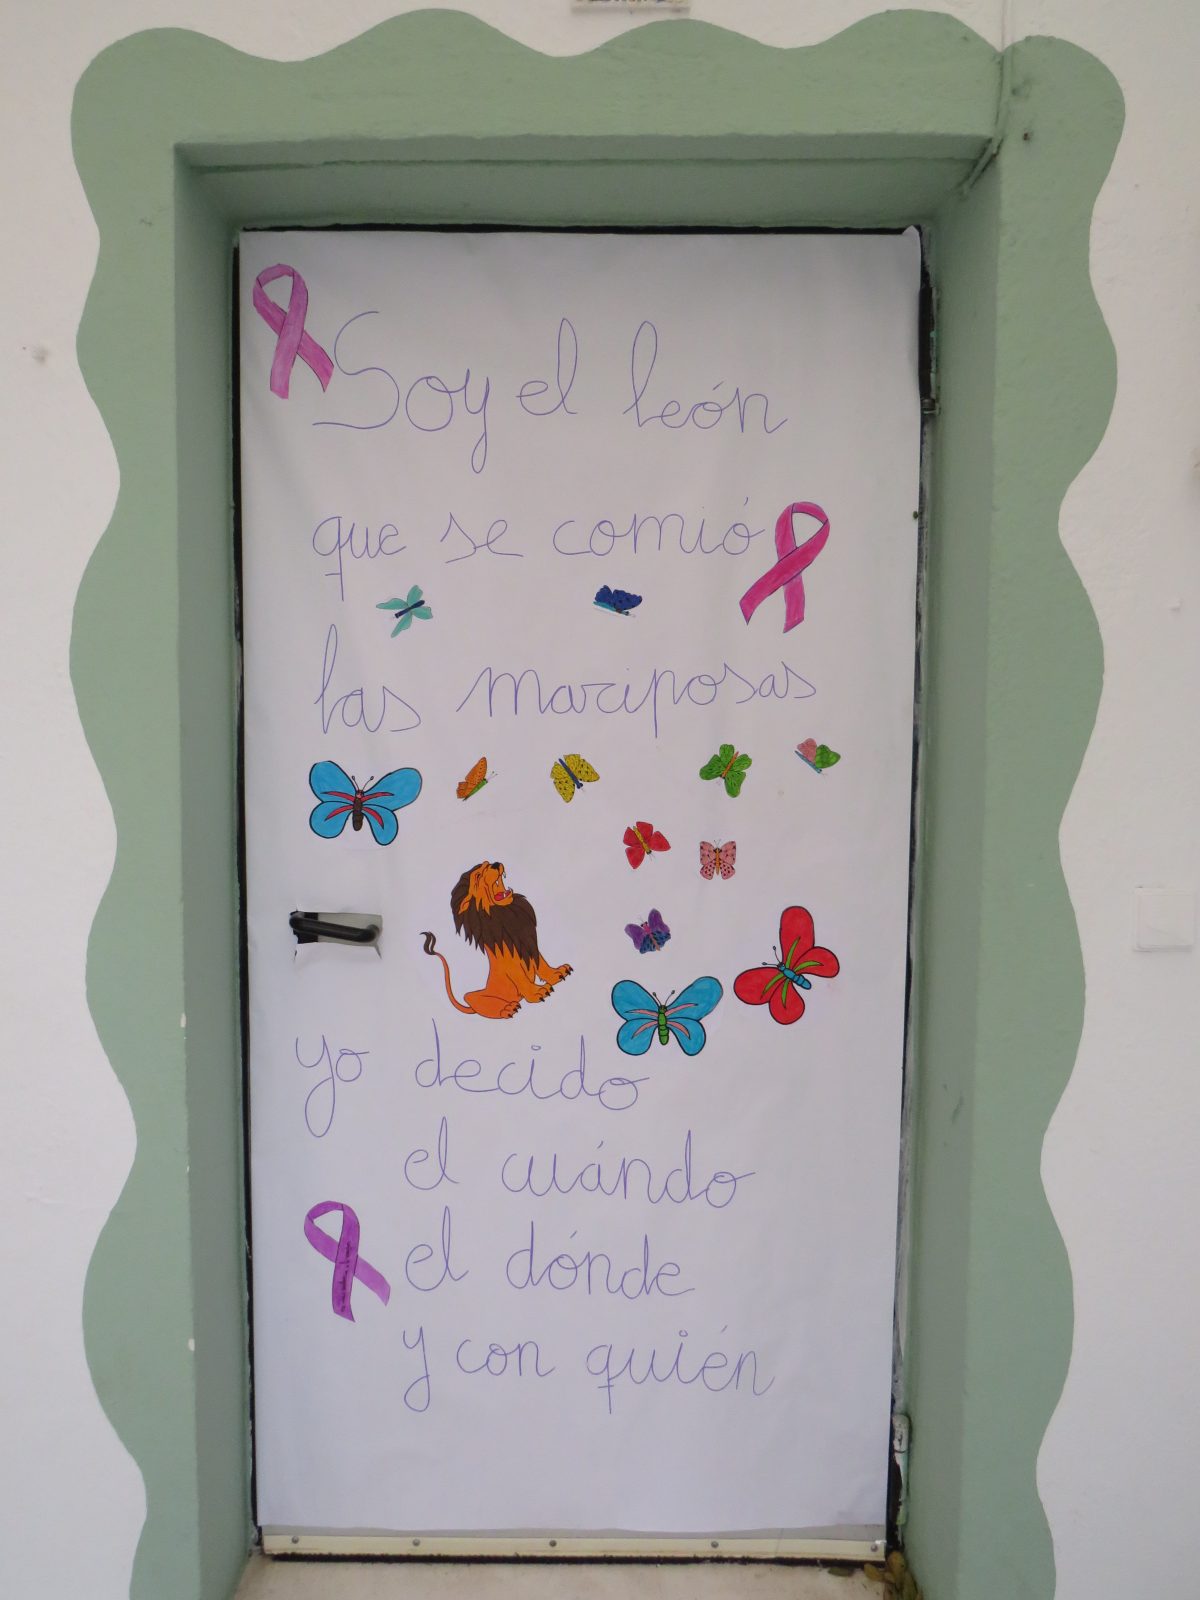 Soy el león
que se comió
las mariposas
yo decido
el cuándo
el dónde
y con quién